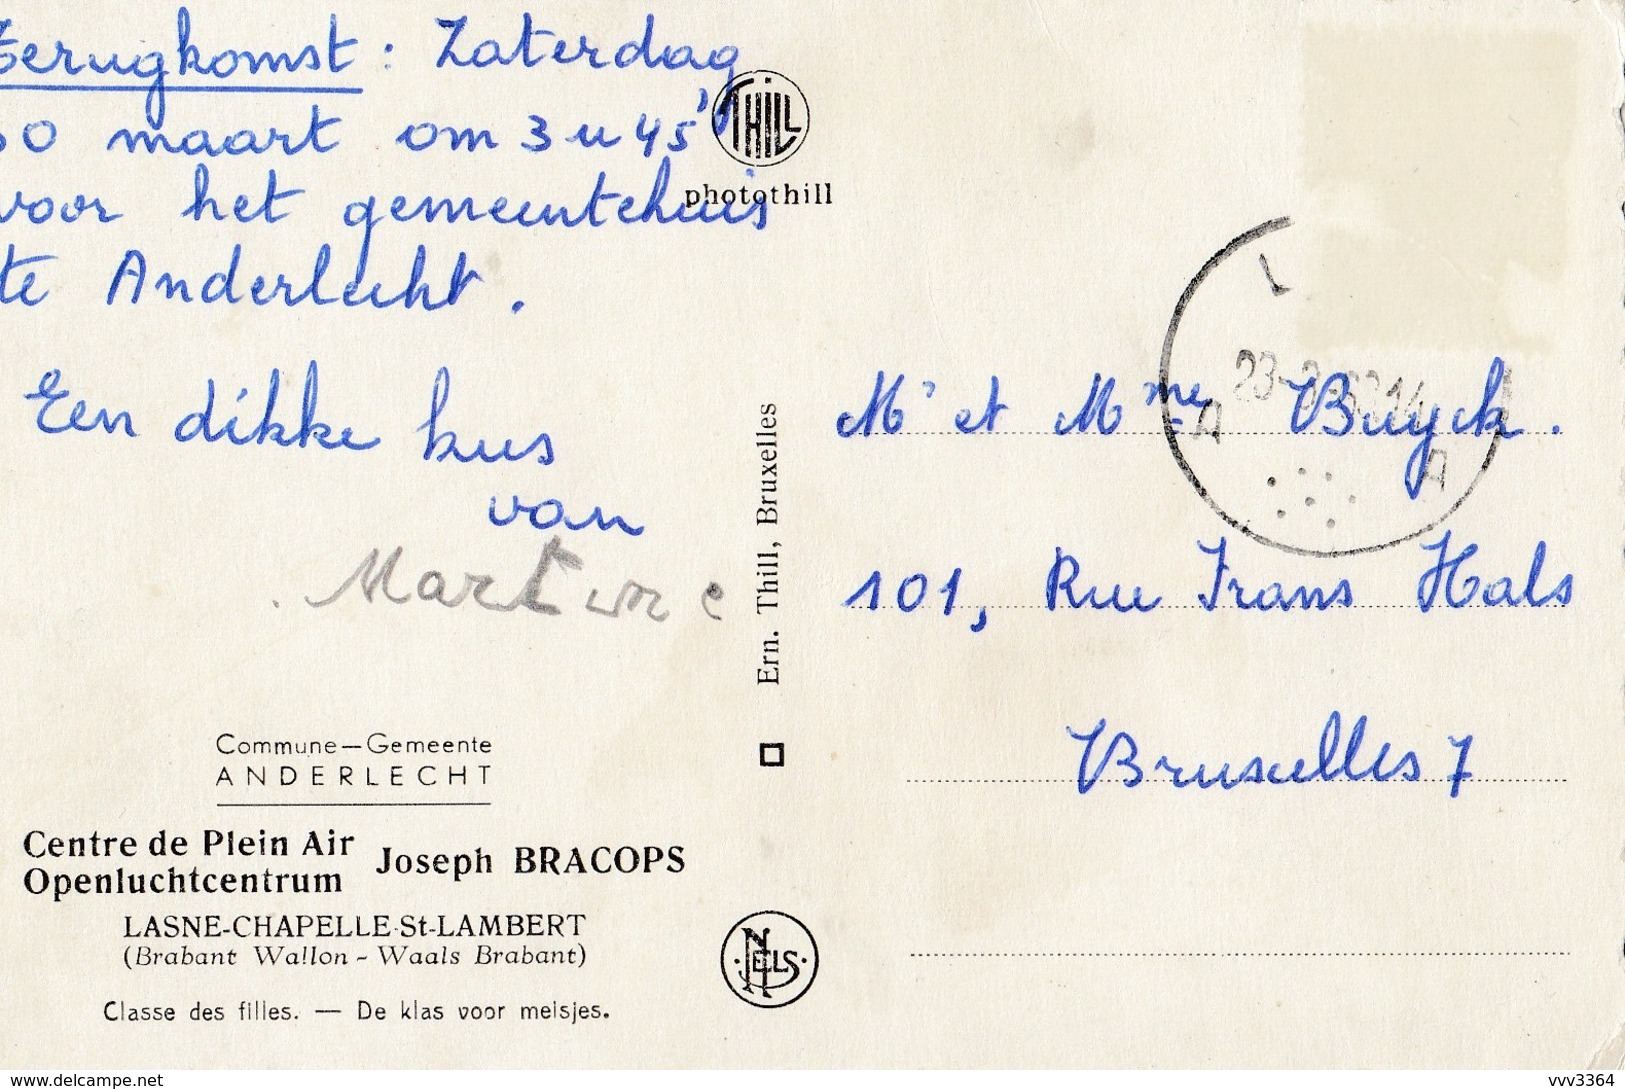 Terugkomst : Zaterdag
30 maart om 3 u 45'
voor het gemeentehuis
te Anderlecht.
Een dikke kus
van
Martine
Commune – Gemeente
ANDERLECHT
Centre de Plein Air
Openluchtcentrum
Joseph BRACOPS
LASNE-CHAPELLE-St-LAMBERT
(Brabant Wallon - Waals Brabant)
Classe des filles. — De klas voor meisjes.
THILL
photothill
Ern. Thill, Bruxelles
NELS
Mr et Mme Buyck.
101, Rue Frans Hals
Bruxelles 7
www.delcampe.net
vvv3364